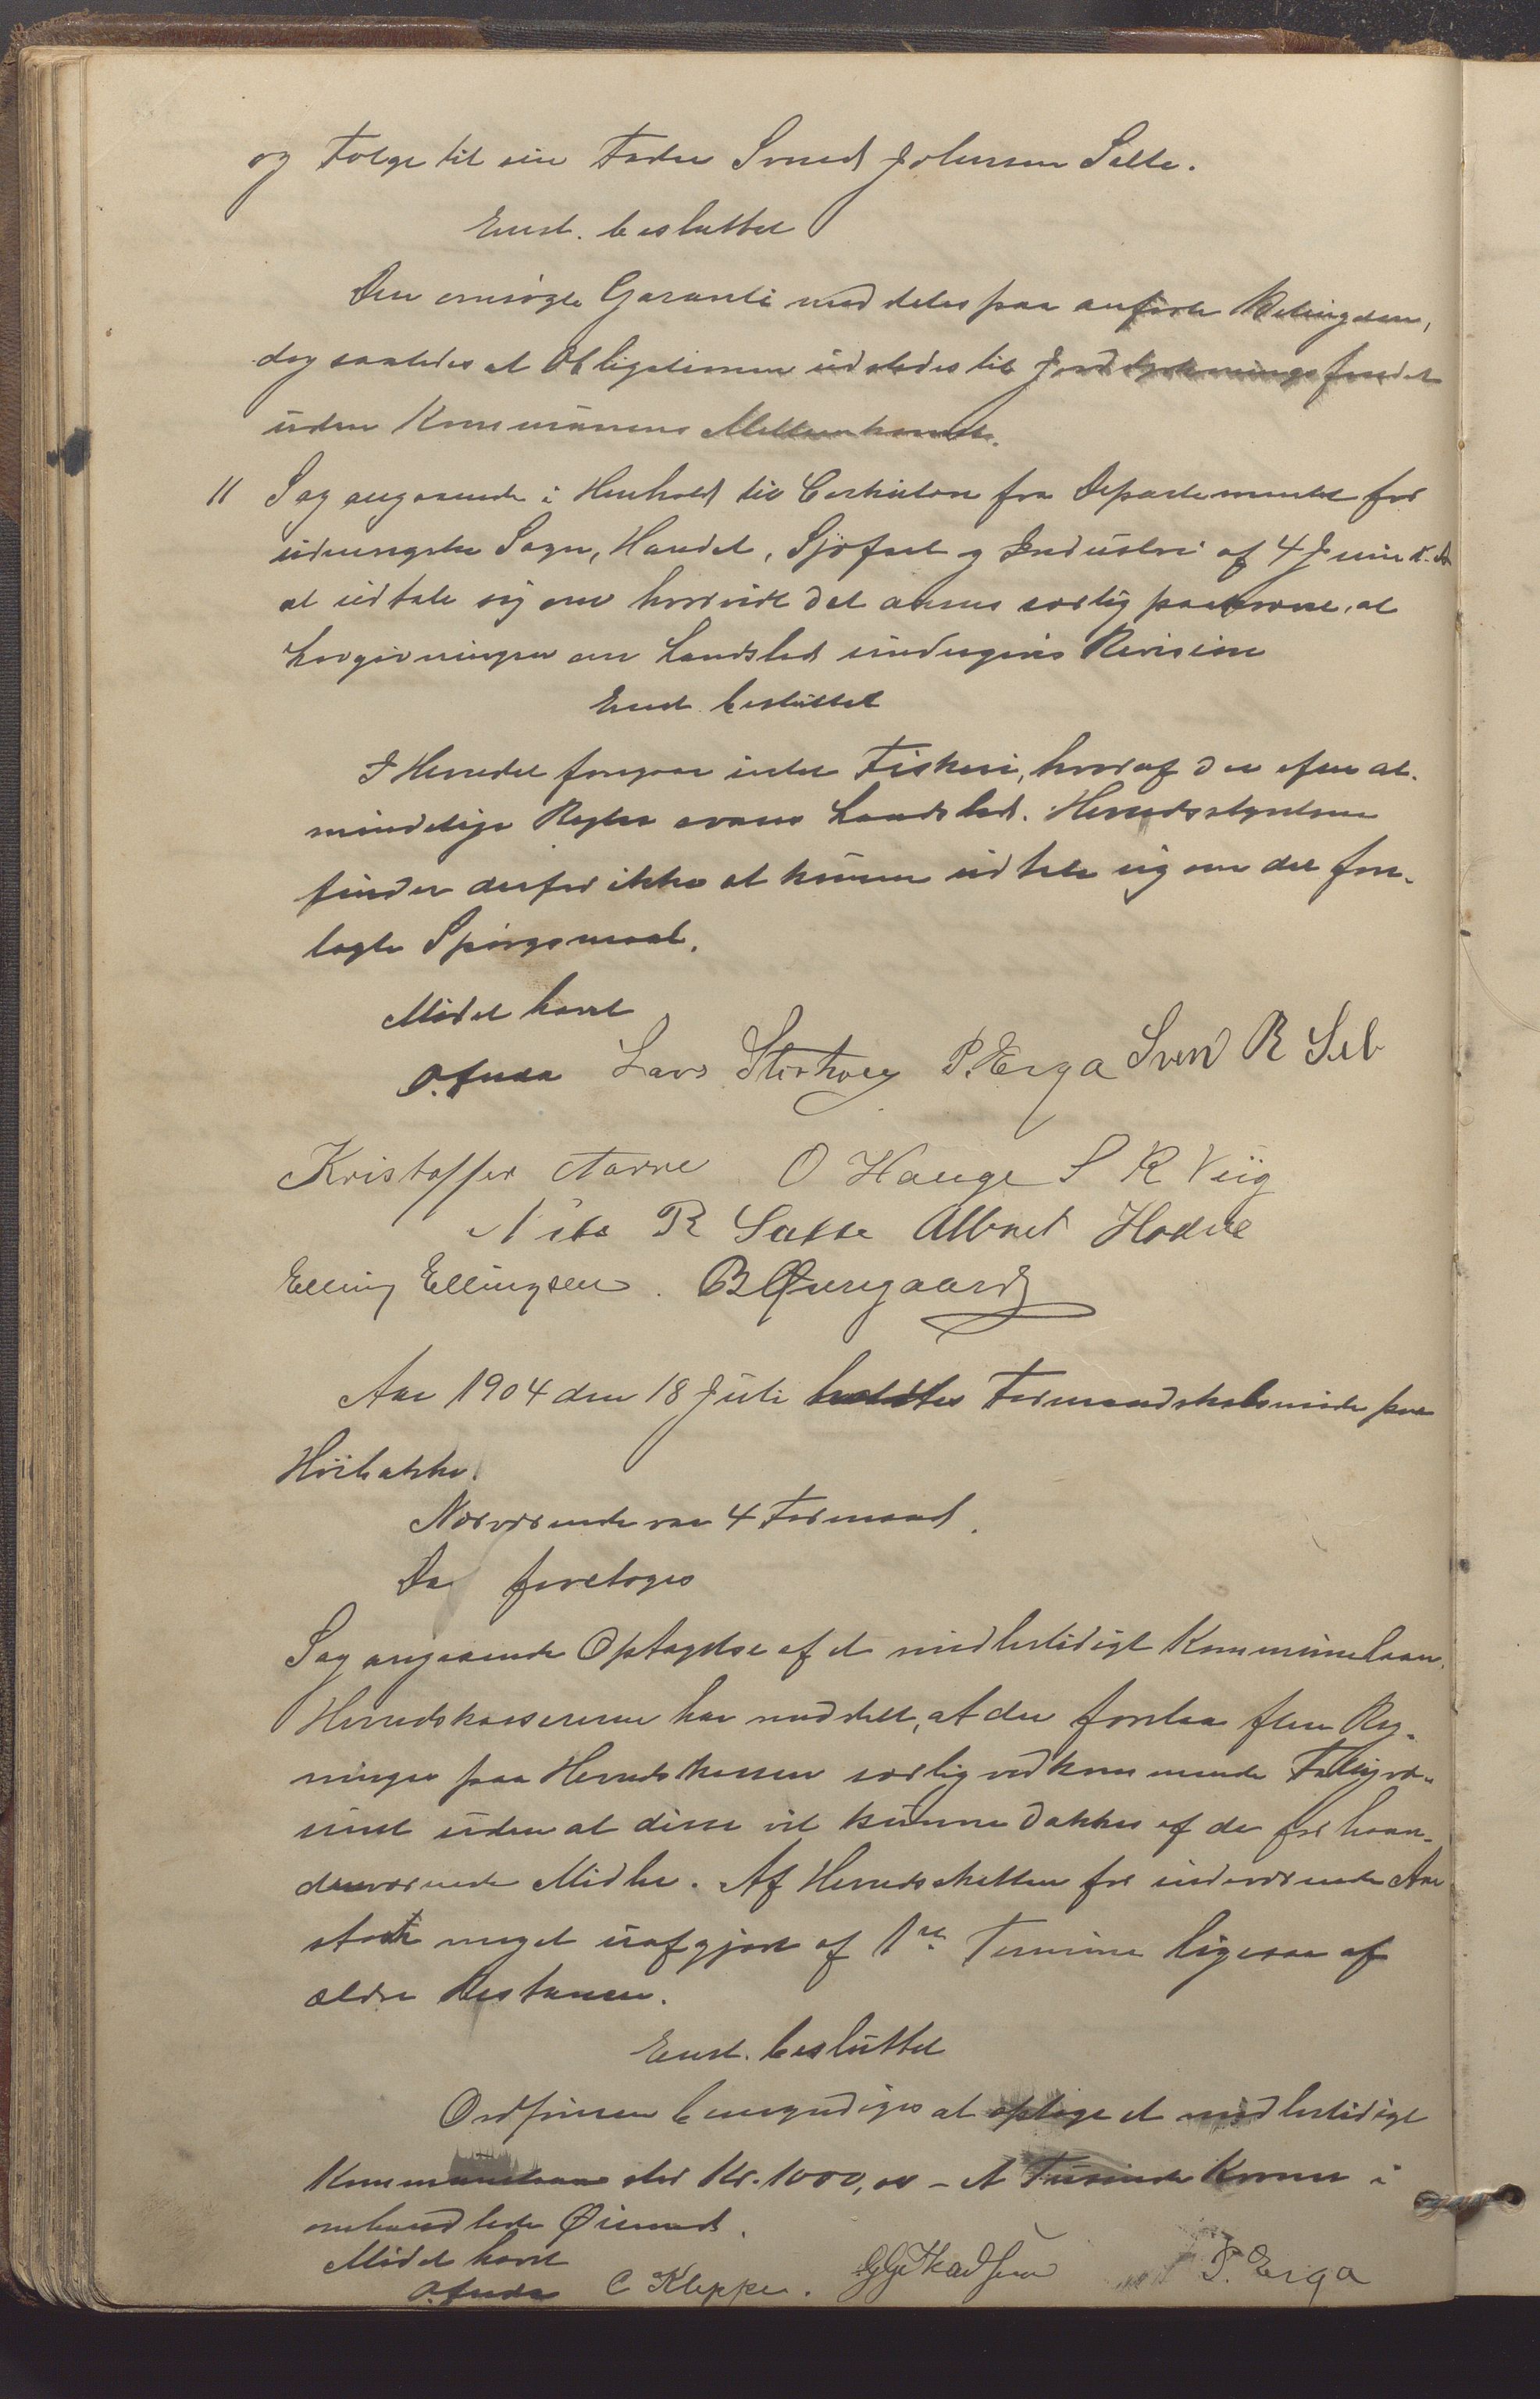 og Følge til sin Fader Svend Johnsen Salte.
Enst. besluttet
Den omsøgte Garanti meddeles paa anførte Betingelser,
dog saaledes at Obligationen udstedes til Jorddyrkningsfondet
uden Kommunens Mellemkomst.
11 Sag angaaende i Henhold til Cirkulære fra Departementet for
udenrigske Sager, Handel, Sjøfart og Industri af 4 Juni d. A
at udtale sig om hvorvidt det ansees særlig paakrævet, at
Lovgivningen om Landslod undergives Revision
Enst. besluttet
I Herredet foregaar intet Fiskeri, hvoraf der efter al-
mindelige Regler svares Landslod. Herredsstyrelsen
finder derfor ikke at kunne udtale sig om det fore-
lagte Spørgsmaal.
Mødet hævet
O. Lars Storhoug P. Erga Sven R Sel
Kristoffer Tarve O Hauge S R Viig
Nils R Salte Albret Hodne
Elling Ellingsen. B Øuregaard
Aar 1904 den 18 Juli holdtes Formandskabsmøde paa
Høibakke.
Nærværende var 4 Formænd.
Da foretoges
Sag angaaende Optagelse af et midlertidigt Kommunelaan.
Herredskassereren har meddelt, at der forelaa flere Reg-
ninger paa Herredskassen særlig vedkommende Fattigvæ-
senet uden at disse vil kunne dækkes af de forhaan-
denværende Midler. Af Herredsskatten for indeværende Aar
stod meget uafgjort af 1ste Termine ligesaa af
ældre Restancer.
Enst. besluttet
Ordføreren bemyndiges at optage et midlertidigt
Kommunelaan stor Kr. 1000,00 – et Tusinde Kroner i
omhandlede Øiemed.
Mødet hævet
O. C Kleppe. P. Erga